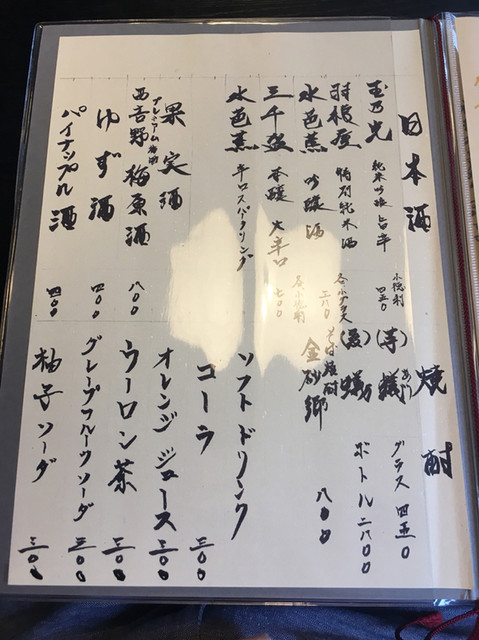 日本酒
玉乃光 純米吟醸 旨辛 小徳利 四五〇
羽根屋 特別純米酒
水芭蕉 吟醸酒
三千盛 本醸 大辛口 各小徳利 七〇〇
水芭蕉 辛口スパークリング
果実酒
プレミアム梅酒
西吉野 梅原酒 八〇〇
ゆず酒 四〇〇
パイナップル酒 四〇〇
焼酎
(芋) グラス 四五〇
(麦) ボトル 二八〇〇
そば焼酎
金砂郷 八〇〇
ソフトドリンク
コーラ 三〇〇
オレンジジュース 三〇〇
ウーロン茶 三〇〇
グレープフルーツソーダ 三〇〇
柚子ソーダ 三〇〇